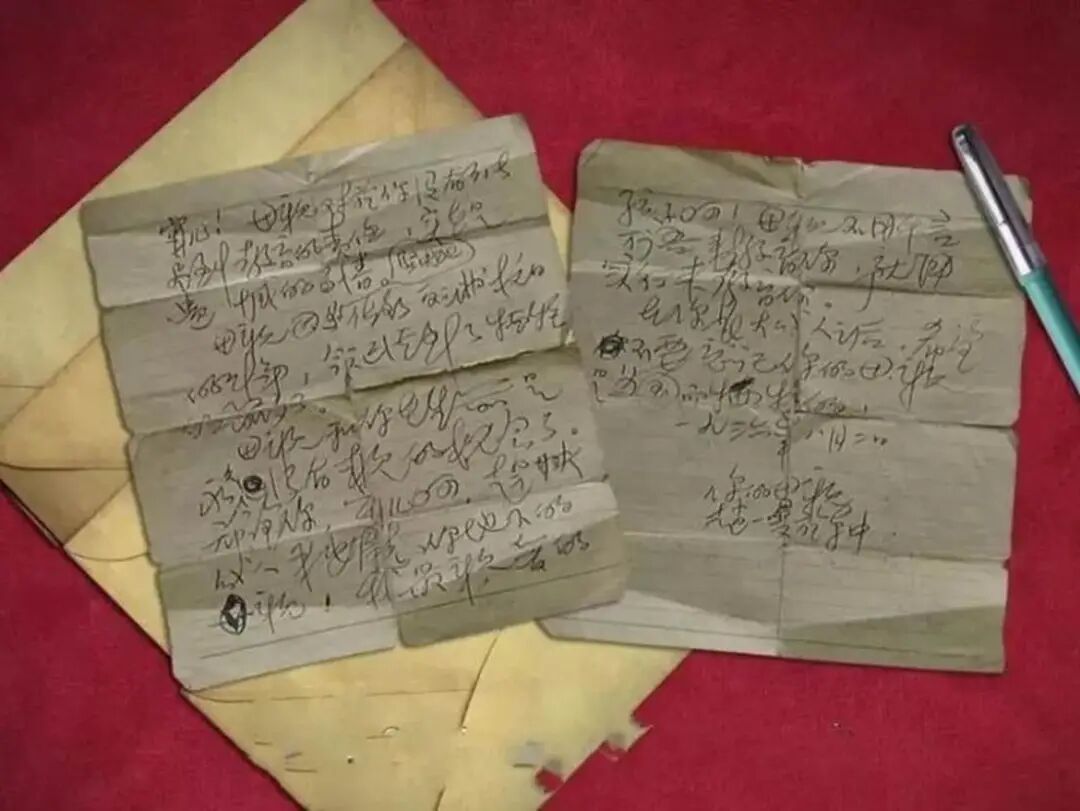 宁儿!母亲对于你没有能
尽到教育的责任,实在是
遗憾的事情。坚决地
母亲因为做了反满抗日
的斗争,今天已经到了牺牲
的前夕了。
母亲和你在生前是
永久没有再见的机会了。
希望你,宁儿啊!赶快
成人,来安慰你地下的
母亲!我最亲爱的
孩子啊!母亲不用千言
万语来教育你,就用
实行来教育你。
在你长大成人之后,希望
不要忘记你的母亲
是为国而牺牲的!
一九三六年八月二日
你的母亲
赵一曼于车中